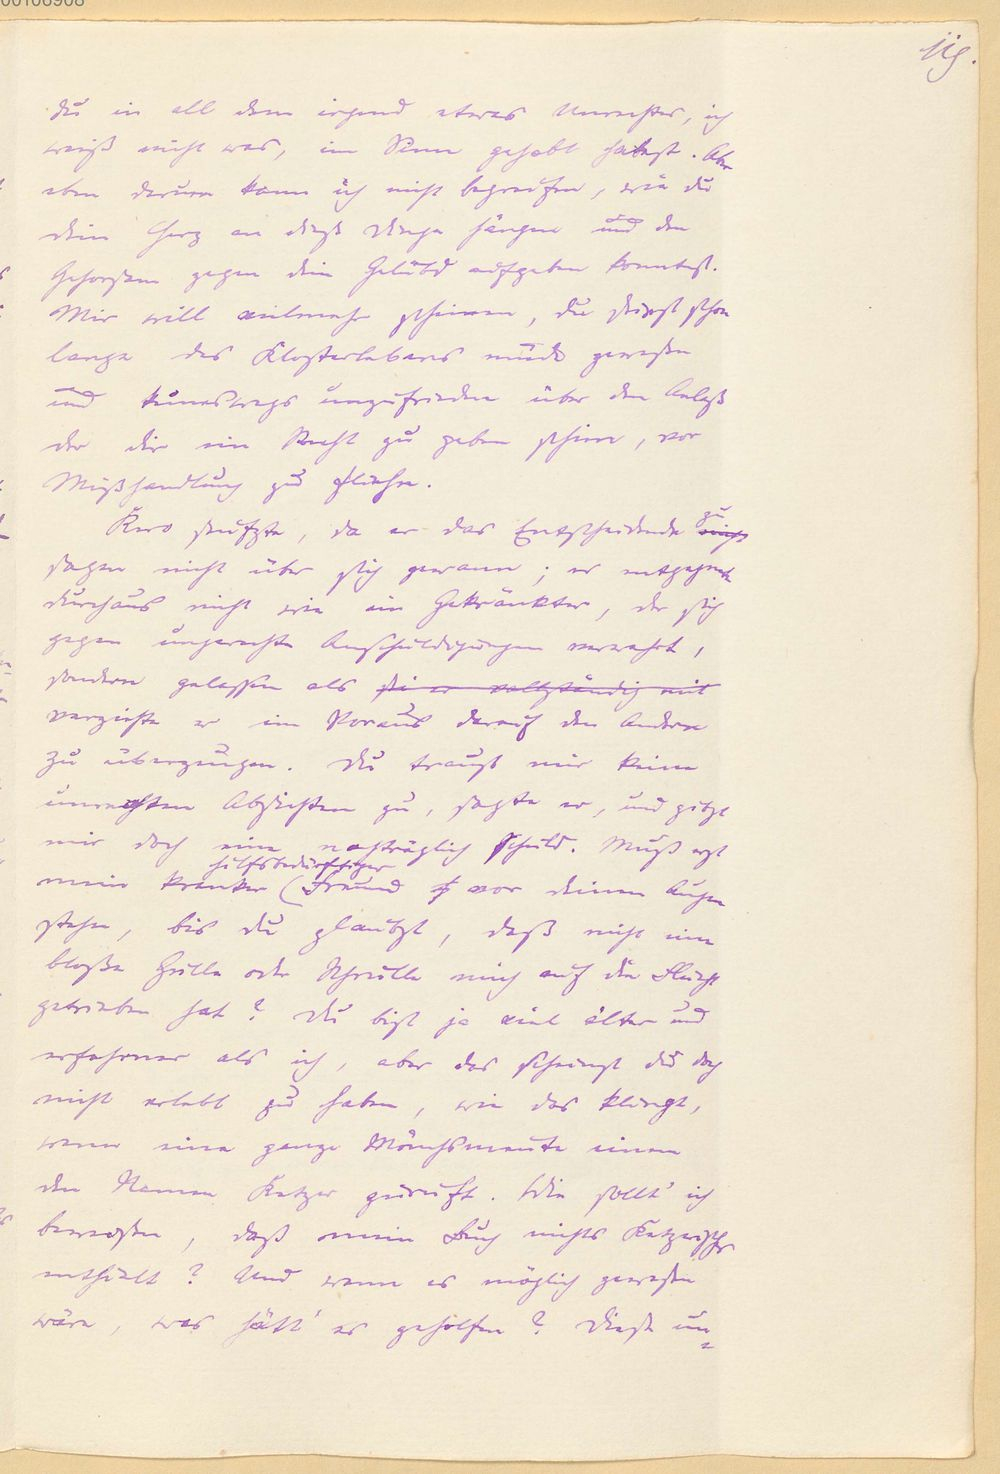 119.
du in all dem irgend etwas Unrechtes, ich
weiß nicht was, im Sinn gehabt habest. Aber
eben darum kann ich nicht begreifen, wie du
dein Herz an dieß Ding hängen und den
Gehorsam gegen dein Gelübd aufgeben konntest.
Mir will vielmehr scheinen, du seist schon
lange des Klosterlebens müde gewesen
und keineswegs unzufrieden über den Anlaß
der dir ein Recht zu geben schien, vor
Mißhandlung zu fliehn.
Kero seufzte, da er das Entscheidende zu
sagen nicht über sich gewann; er entgegnete
durchaus nicht wie ein Gekränkter, der sich
gegen ungerechte Anschuldigungen verwahrt,
sondern gelassen als sei er vollständig mit
verzichte er im Voraus darauf den Andern
zu überzeugen. Du traust mir keine
unrechten Absichten zu, sagte er, und gibst
mir doch eine nachträglich Schuld. Muß erst
hilfsbedürftiger
mein kranker Freund vor deinen Augen
stehn, bis du glaubst, daß nicht eine
bloße Grille oder Schrulle mich auf die Flucht
getrieben hat? Du bist ja viel älter und
erfahrner als ich, aber das scheinst du doch
nicht erlebt zu haben, wie das klingt,
wenn eine ganze Mönchsmeute einem
den Namen Ketzer zuruft. Wie sollt' ich
beweisen, daß mein Buch nichts Ketzerisches
enthielt? Und wenn es möglich gewesen
wäre, was hätt' es geholfen? Diese un=